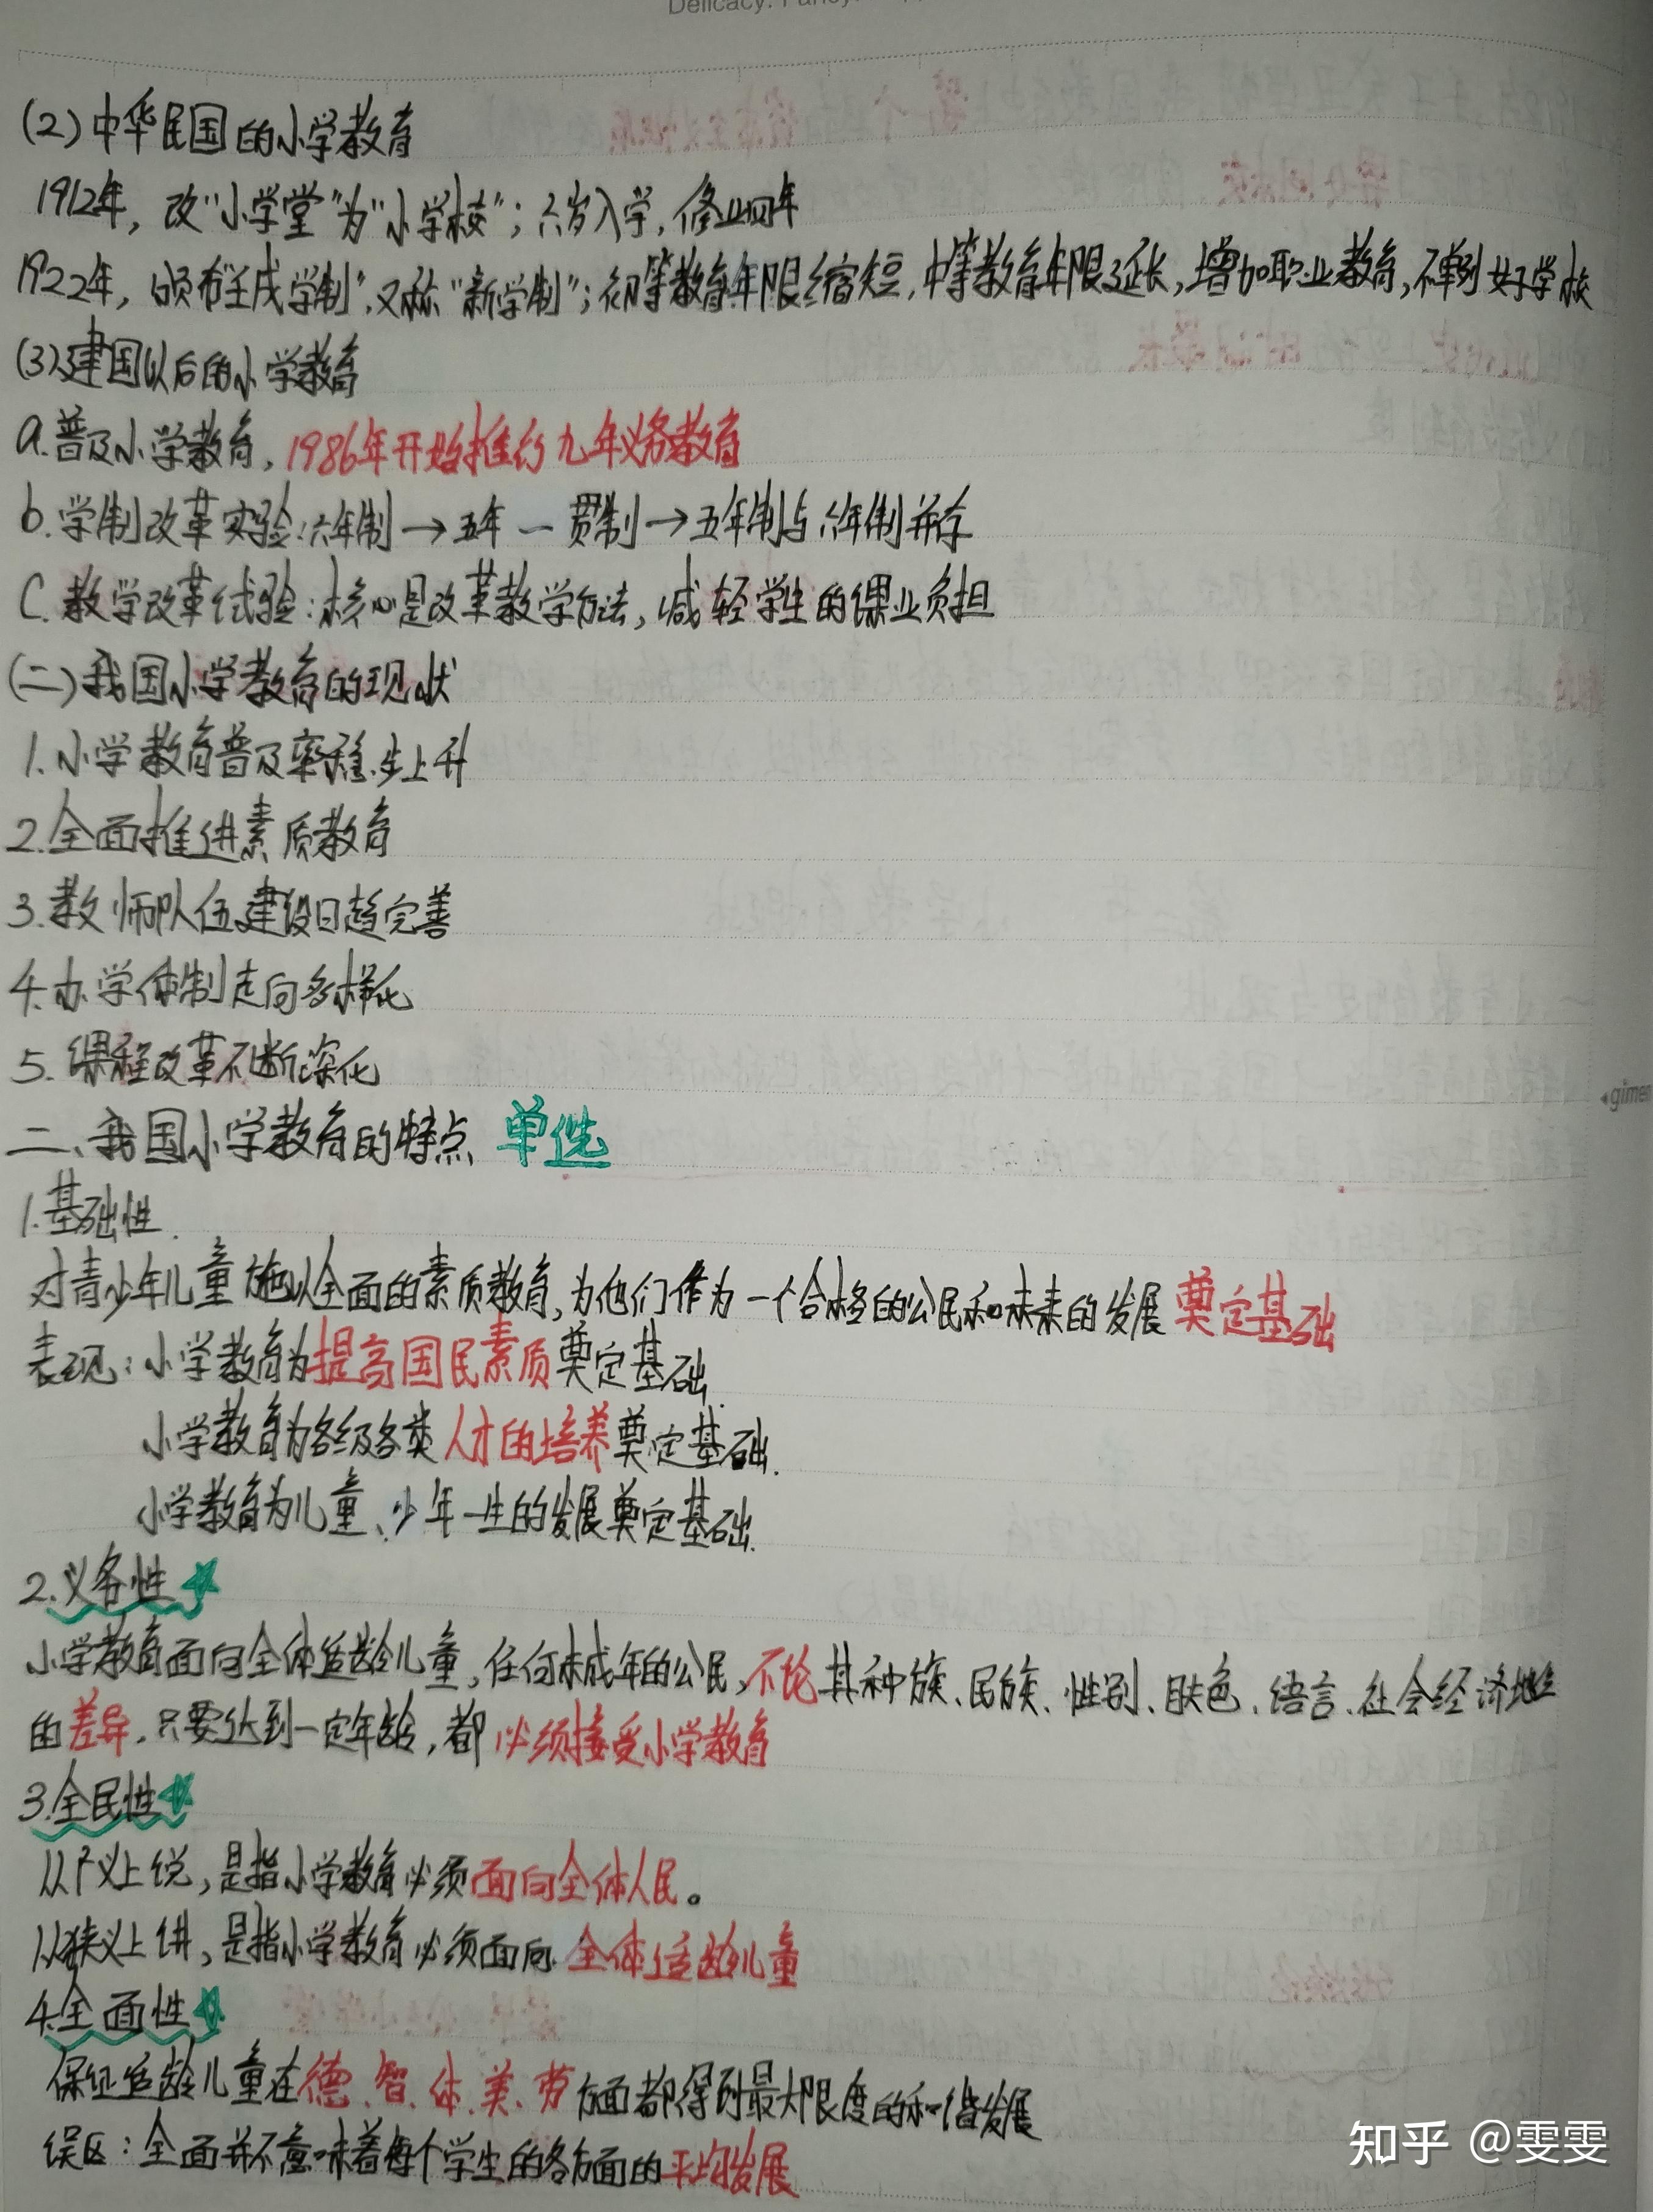 Delicacy.
(2)中华民国的小学教育
1912年,改"小学堂"为"小学校";六岁入学,修业四年
1922年,颁布"壬戌学制",又称"新学制";初等教育年限缩短,中等教育年限延长,增加职业教育,不单列女子学校
(3)建国以后的小学教育
a.普及小学教育,1986年开始推行九年义务教育
b.学制改革实验:六年制→五年一贯制→五年制与六年制并存
C.教学改革试验:核心是改革教学方法,减轻学生的课业负担
(二)我国小学教育的现状
1.小学教育普及率稳步上升
2.全面推进素质教育
3.教师队伍建设日趋完善
4.办学体制走向多样化
5.课程改革不断深化
二、我国小学教育的特点 单选
1.基础性
对青少年儿童施以全面的素质教育,为他们作为一个合格的公民和未来的发展奠定基础
表现:小学教育为提高国民素质奠定基础
小学教育为各级各类人才的培养奠定基础.
小学教育为儿童、少年一生的发展奠定基础.
2.义务性
小学教育面向全体适龄儿童,任何未成年的公民,不论其种族、民族、性别、肤色、语言、社会经济地位
的差异,只要达到一定年龄,都必须接受小学教育
3.全民性
从广义上说,是指小学教育必须面向全体人民。
从狭义上讲,是指小学教育必须面向全体适龄儿童
4.全面性
保证适龄儿童在德、智、体、美、劳方面都得到最大限度的和谐发展
误区:全面并不意味着每个学生的各方面的平均发展
知乎 @雯雯